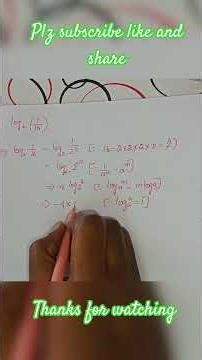 Plz subscribe like and
share
log₂ (1/16)
⇒ log₂ 1/16 = log₂ 1/2⁴ [∵ 16=2×2×2×2=2⁴]
= log₂ 2⁻⁴ [∵ 1/aᵐ = a⁻ᵐ]
⇒ -4 log₂ 2
⇒ -4×1
Thanks for watching